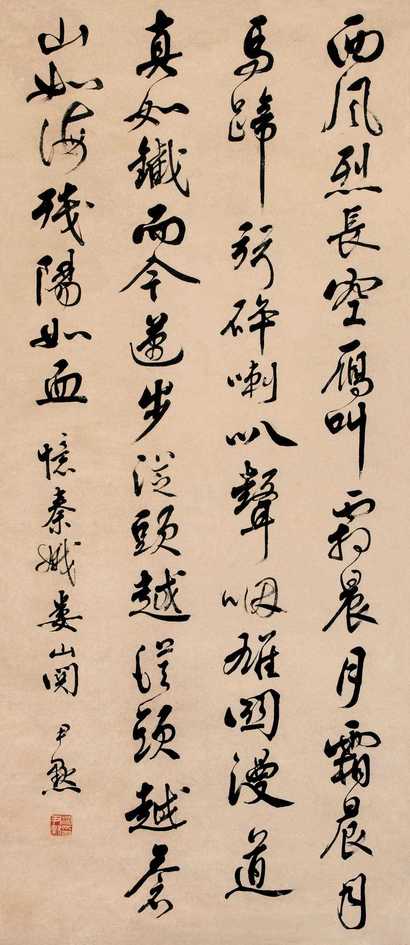 西风烈長空雁叫霜晨月霜晨月
馬蹄聲碎喇叭聲咽雄関漫道
真如鐵而今邁步從頭越從頭越蒼
山如海殘陽如血 憶秦娥婁山関 尹默